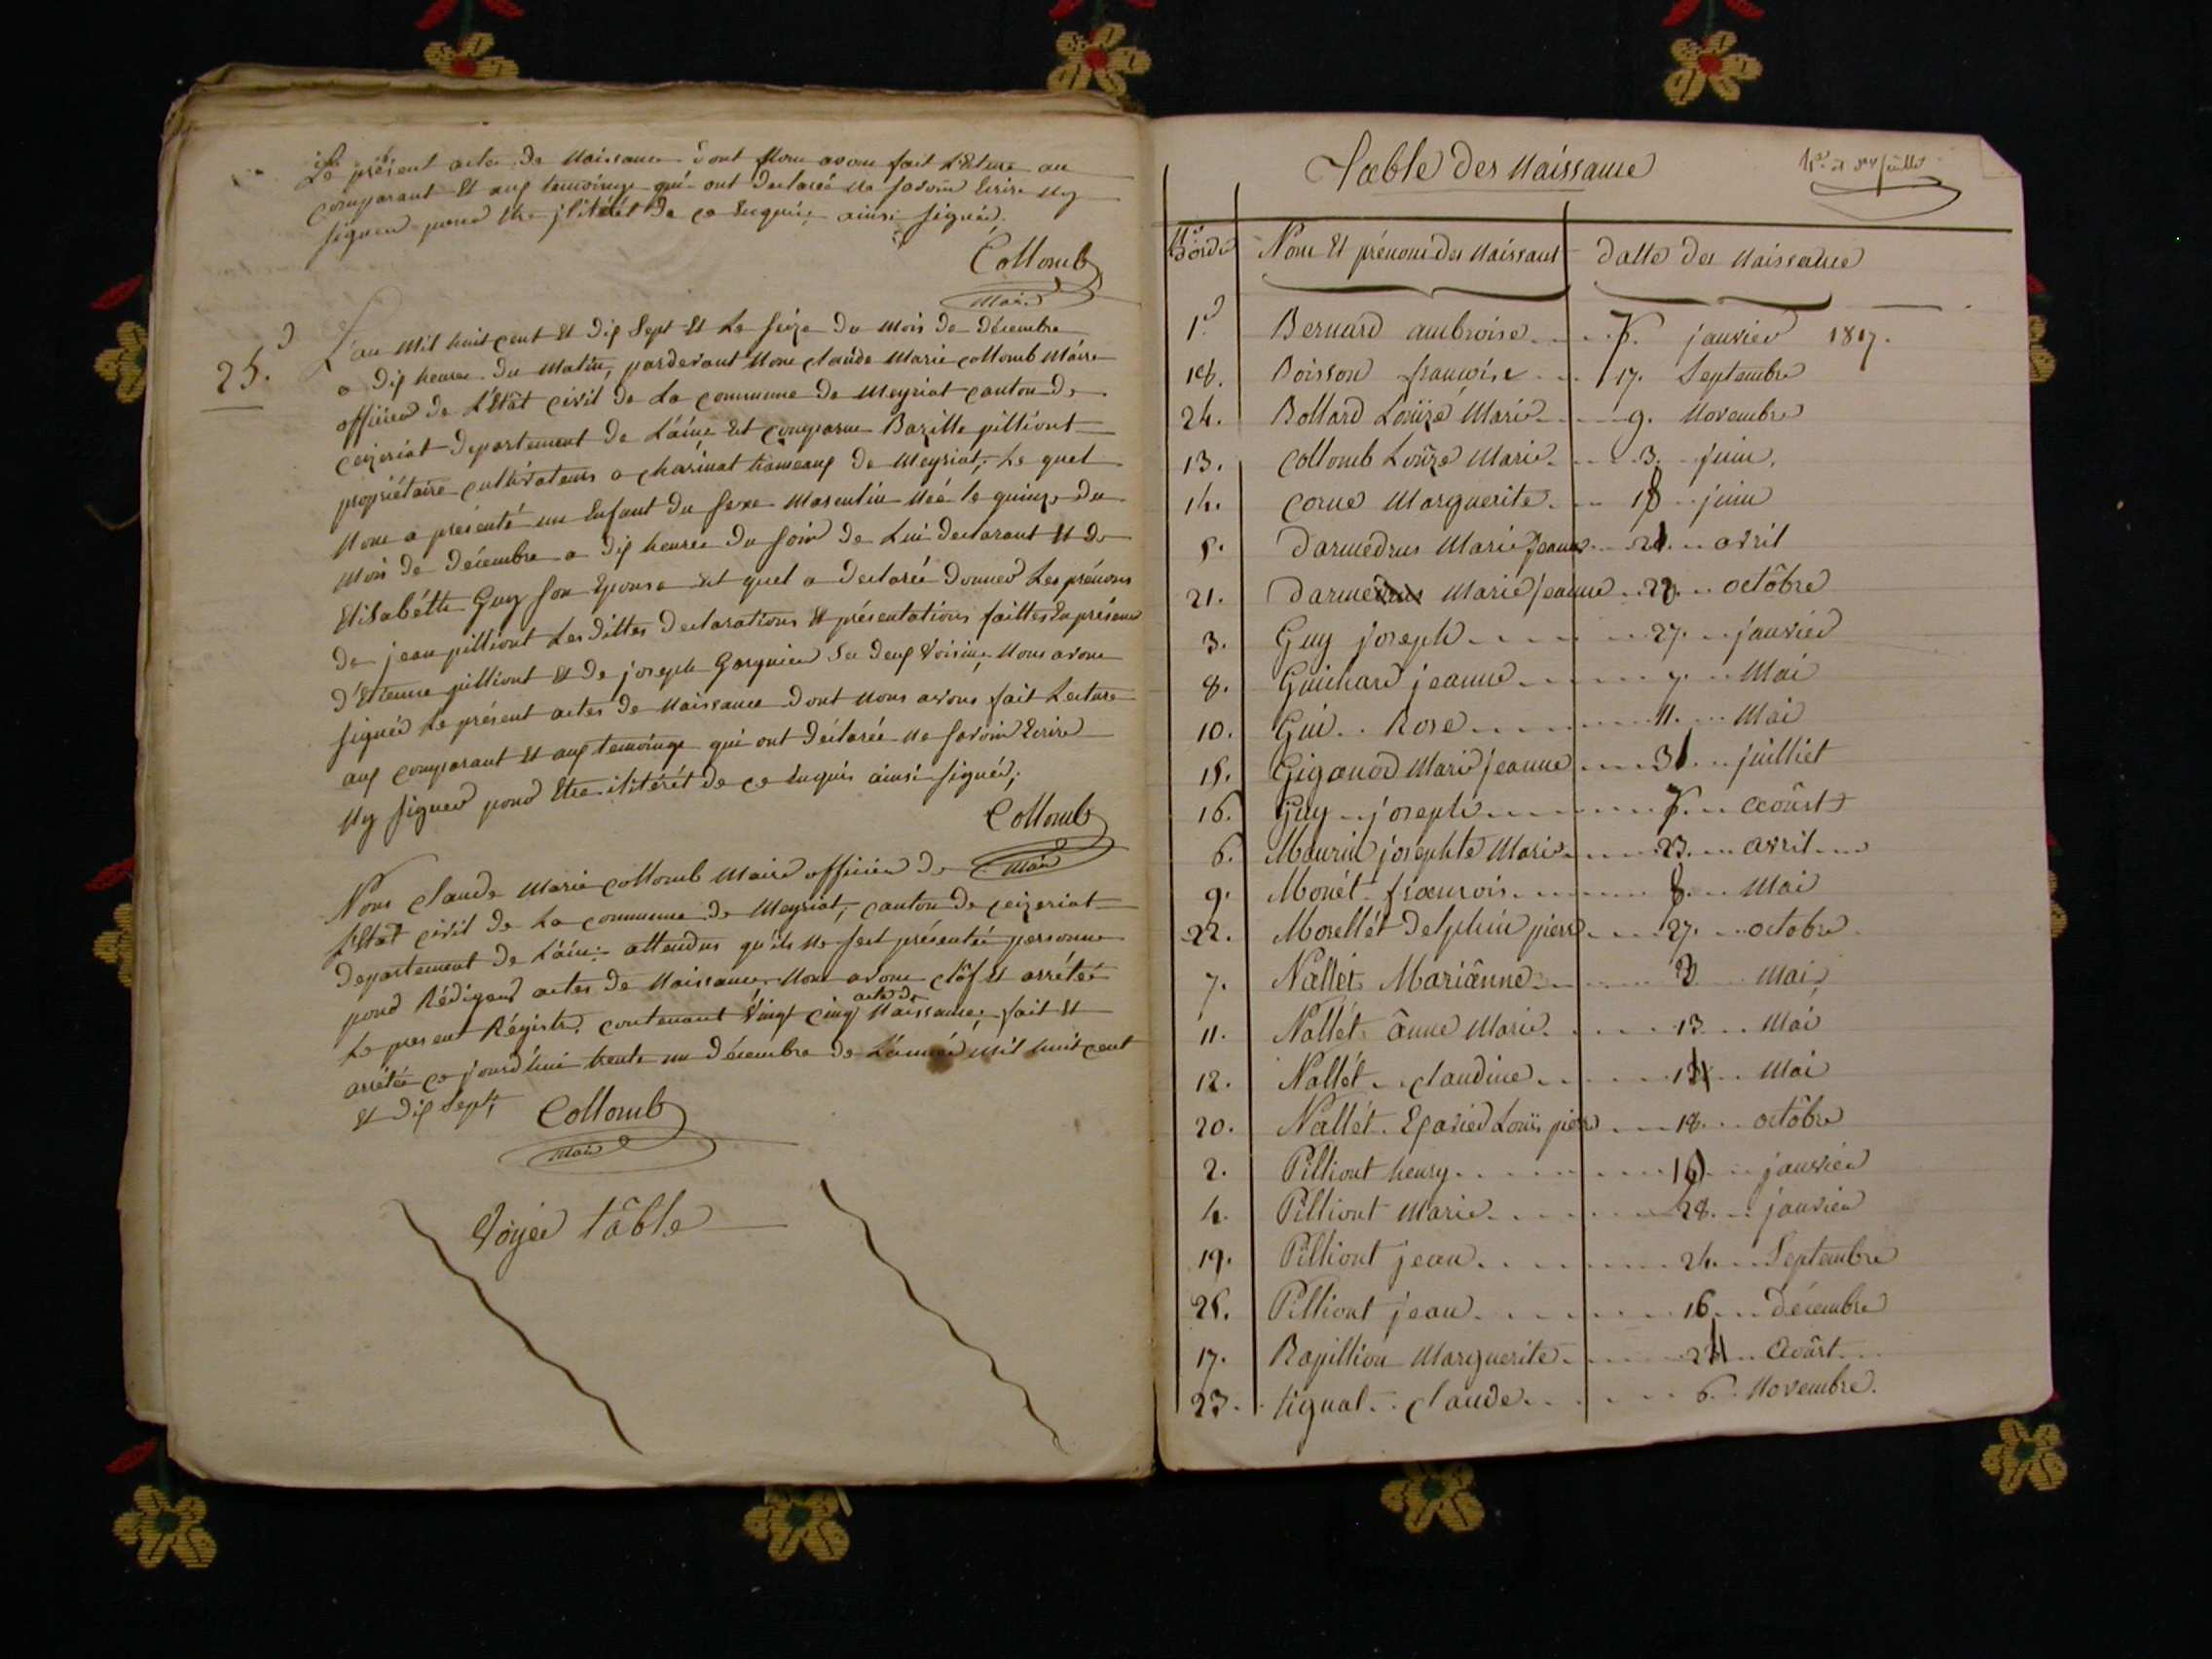 Le présent acte de Naissance dont Nous avons fait Lecture au
comparant Et aux temoings qui ont declareé ne savoir Ecrire Ny
signer pour Etre ilitérét de ce Enquis ainsi signée,
Collomb
Maire
25.
L'an Mil huit cent Et dix Sept Et Le seize du Mois de décembre
a dix heures du Matin, pardevant Nous claude Marie collomb Maire
officier de L'Etât civil de La commune de Meyriat canton de
ceizeriat departement de L'ain Est comparue Bazille pilliont
propriétaire cultivateurs a charinat hameaux de Meyriat, Le quel
Nous a présenté un Enfant du Sexe Masculin Neé le quinze du
Mois de décembre a dix heures du Soir de Lui declarant Et de
Elisabétte Guy Son Epouse Et quel a declareé donner Les prénoms
de jean pilliont Les dittes declarations Et présentations faittes En présence
d'Etienne pilliont Et de joseph Gorgnier Ses deux Voisins, Nous avons
signée Le présent actes de Naissance dont Nous avons fait Lecture
aux comparant Et aux temoings qui ont déclareé ne savoir Ecrire
Ny signer pour Etre ilitérét de ce Enquis ainsi signée,
Collomb
Maire
Nous claude Marie collomb Maire officier de
L'Etat civil de La commune de Meyriat, canton de ceizeriat
departement de L'ain attendus qu'ils ne sest présentée personne
pour Rédiger actes de Naissance, Nous avons clôs Et arrétée
Le present Régistre, contenant Vingt cinq acte de Naissance, fait Et
arrétée ce jourd'hui trente un décembre de L'anneé Mil huit cent
Et dix Sept,
Collomb
Maire
Voyée tâble
Table des Naissance
N° d'ordre Nom Et prénom des Naissant datte des Naissance
1er Bernard ambroise 7. janvier 1817.
18. Boisson françoise 17. Septembre
24. Bollard Louïze Marie 9. Novembre
13. collomb Louïze Marie 3. juin.
14. corne Marguerite 18 juin
5. darmedrus Marie Jeanne 21 avril
21. darme Marie Jeanne 22 octôbre
3. Guy joseph 27. janvier
8. Guichard jeanne 7. Mai
10. Gui Rose 11. Mai
15. Gigonod Marie Jeanne 31 juilliet
16. Guy joseph 7. aoûst
6. Maurin josephte Marie 23. avril
9. Monét françois 8. Mai
22. Morellét delphin pierre 27. octobre
7. Nallét Mariânne 3 Mai
11. Nallét ânne Marie 13 Mai
12. Nallét claudine 14 Mai
20. Nallét Exavier Louis pierre 18. octôbre
2. Pilliont henry 16 janvier
4. Pilliont Marie 28. janvier
19. Pilliont jean 24. Septembre
25. Pilliont jean 16. décembre
17. Rapillion Marguerite 24 Aoûst
23. tignat claude 6. Novembre.